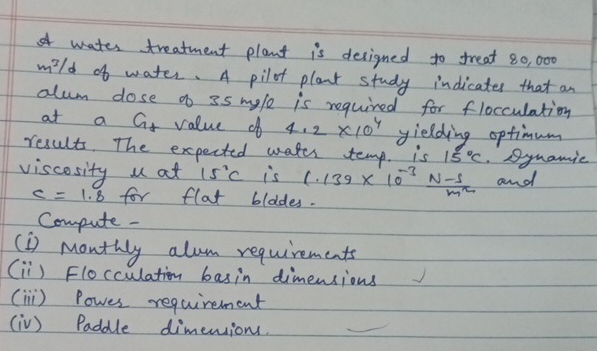 A water treatment plant is designed to treat 80,000
m³/d of water. A pilot plant study indicates that an
alum dose of 35 mg/l is required for flocculation
at a Gt value of 4.2 × 10⁴ yielding optimum
results. The expected water temp. is 15°C. Dynamic
viscosity u at 15°C is 1.139 × 10⁻³ N-s/m² and
c = 1.8 for flat blades.
Compute -
(i) Monthly alum requirements
(ii) Flocculation basin dimensions
(iii) Power requirement
(iv) Paddle dimensions.